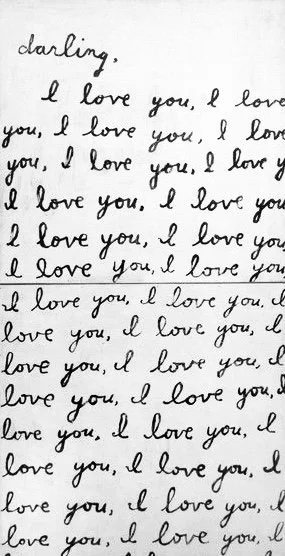 darling,
I love you, I love
you, I love you, I love
you, I love you, I love y
I love you, I love you
I love you, I love you,
I love you, I love you,
I love you, I love you, I
love you, I love you, I
love you, I love you, I
love you, I love you, I
love you, I love you, I
love you, I love you, I
love you, I love you, I
love you, I love you, I